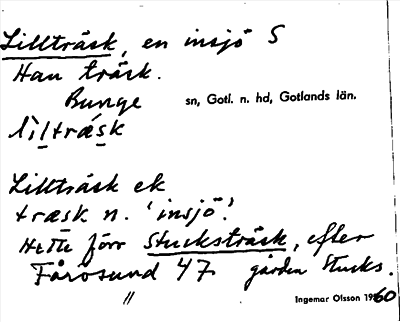 Lillträsk, en insjö S
Hau träsk.
Bunge sn, Gotl. n. hd, Gotlands län.
lìltrǽsk
Lillträsk ek
træsk n. 'insjö'.
Hette förr Stucksträsk, efter
Fårösund 47. gården Stucks.
"
Ingemar Olsson 1960